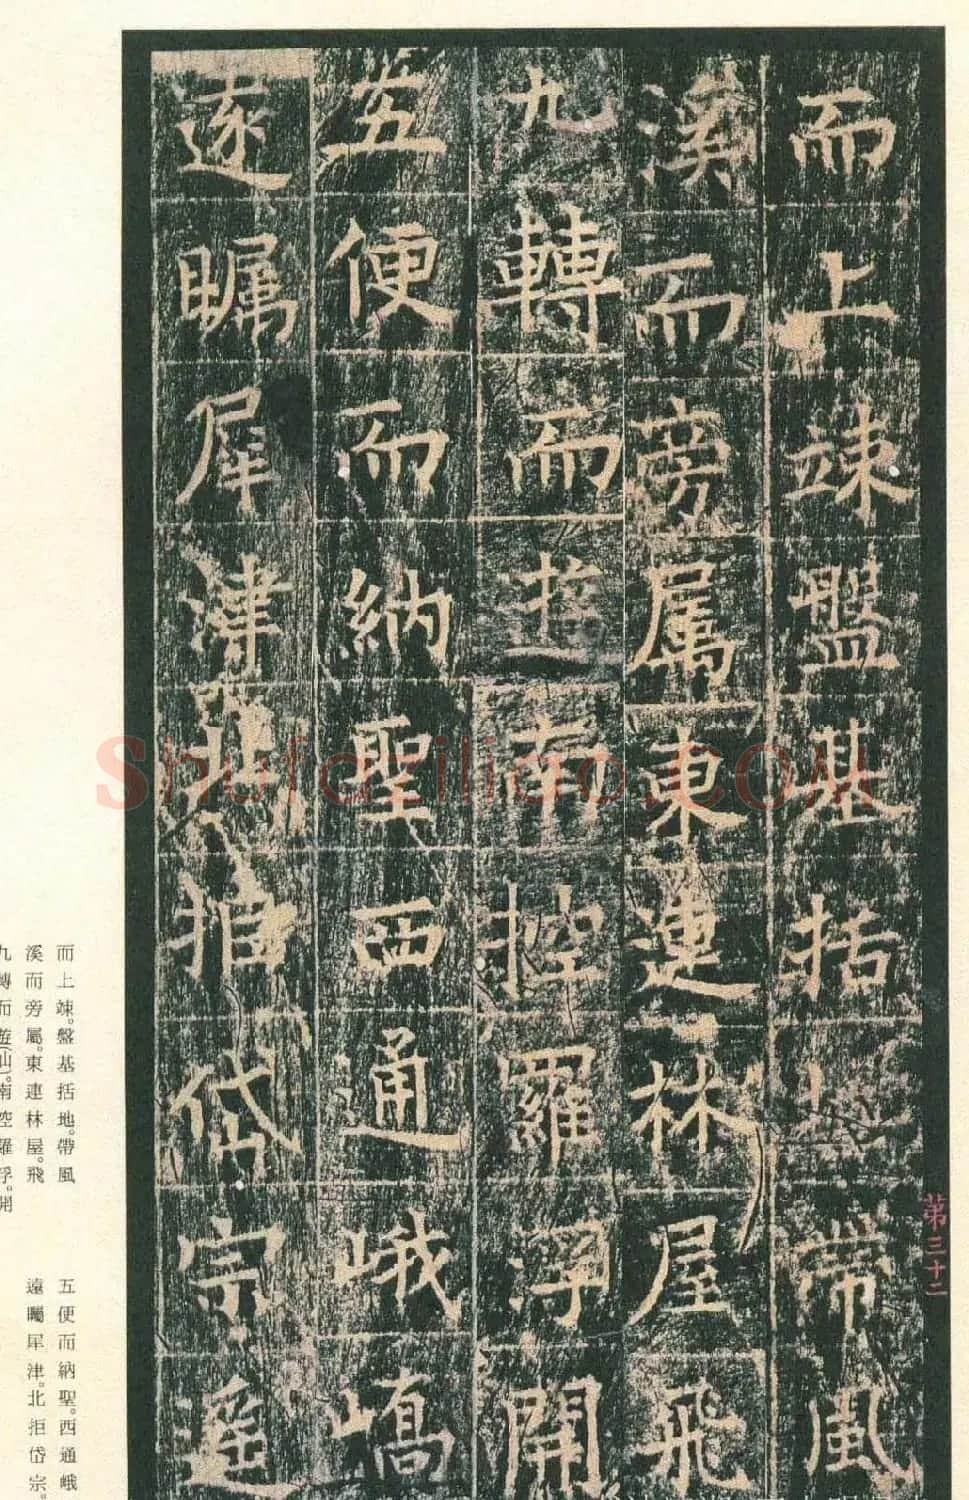 第三十二
而上竦盤基括地帶風
溪而旁屬東連林屋飛
九轉而遊南控羅浮開
五便而納聖西通峨嶠
遠矚犀津北拒岱宗遥
而上竦。盤基括地。帶風
溪而旁屬。東連林屋。飛
九轉而遊(山)。南控羅浮。開
五便而納聖。西通峨
遠矚犀津。北拒岱宗。
Shufaziliao.COM